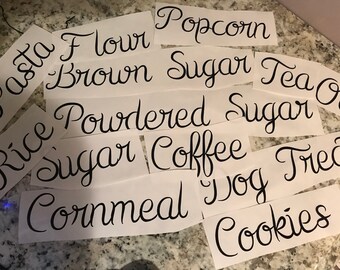 Popcorn
Flour
Pasta
Brown Sugar
Tea
Powdered Sugar
Rice
Sugar
Coffee
Dog Trea
Cornmeal
Cookies